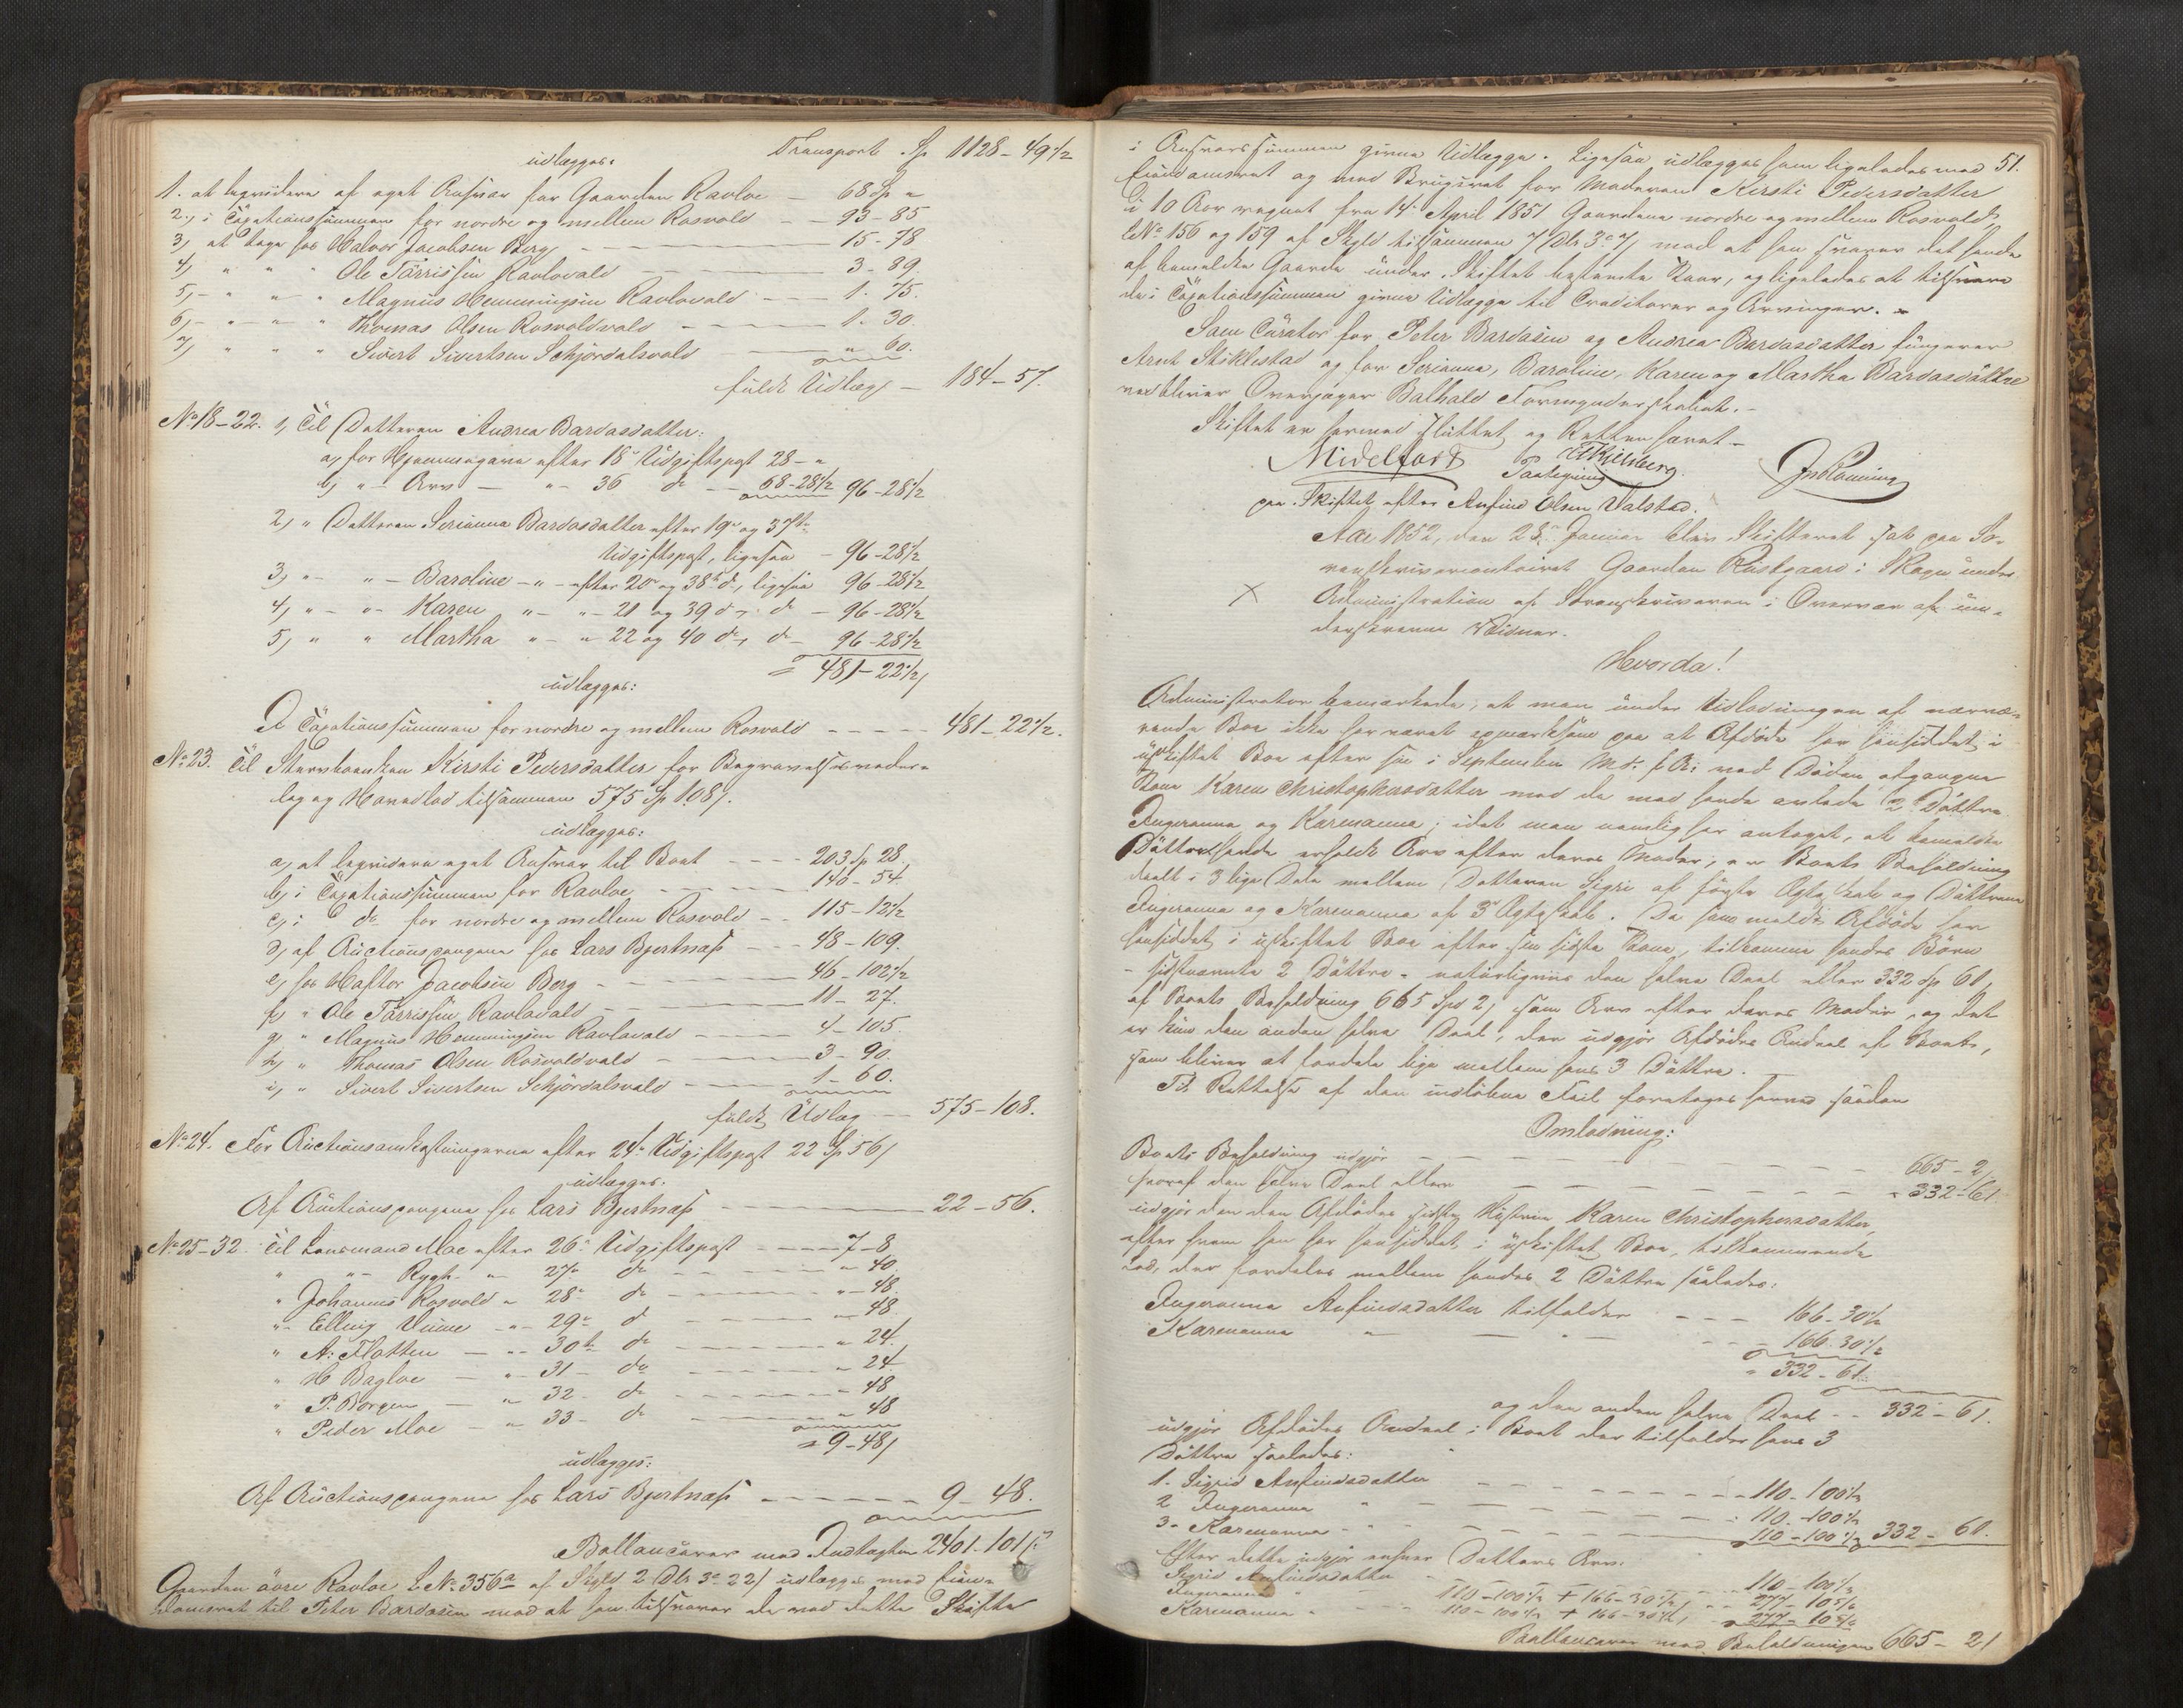 Transport Sp 1128 - 49 1/2
udlægges:
1. at liqvidere af eget Ansvar for Gaarden Ravloe - 68 Sp "
2, i Taxationssummen for nordre og mellem Rosvold - - 93 - 85
3, at tage hos Halvor Jacobsen Berg - 15 - 78
4, " " " Ole Tørrissen Ravlovald - 3 - 89.
5, - " " " Magnus Hemmingsen Ravlovald - - 1. 75.
6, - " " " Thomas Olsen Rosvoldvald - 1. 30.
7, " " " Sivert Sivertsen Schjördalsvald - " 60.
fuldt Udlæg - 184 - 57.
No 18-22. 1, Til Datteren Andrea Bardosdatter:
a, for Hjemmegave efter 18de Udgiftspost 28 - "
b, " - Arv - " - 36 do - 68 - 28 1/2 96 - 28 1/2
2, " Datteren Serianna Bardosdatter efter 19de og 37te
Udgiftspost, ligesaa - 96 - 28 1/2
3, " - " - Baroline - " - efter 20de og 38te do, ligesaa 96 - 28 1/2
4, " - " - Karen " - " - 21 og 39 do, do - 96 - 28 1/2
5, " " Martha " - " 22 og 40 do, do - 96 - 28 1/2
= 481 - 22 1/2,
udlægges:
I Taxationssummen for nordre og mellem Rosvold - - - - - 481 - 22 1/2.
No 23. Til Stervboenken Kirsti Pedersdatter for Begravelsesveder-
lag og Hovedlod tilsammen 575 Sp 108 /.
udlægges:
a, at liqvidere eget Ansvar til Boet - - - - 203 Sp 28.
b, i Taxationssummen for Ravloe - 140 - 54.
c, i do for nordre og mellem Rosvold - - 115 - 12 1/2
d, af Auctionspengene hos Lars Bjertnæss - - - 48 - 109.
e, hos Haftor Jacobsen Berg - 46 - 102 1/2
f, " Ole Tørrissen Ravlovald - 11 - 27.
g, " Magnus Hemmingsen Ravlovald - 4 - 105.
h, " Thomas Olsen Rosvoldvald - 3 - 90.
i, " Sivert Sivertsen Schjördalsvald - 1 - 60.
fuldt Udlæg - 575 - 108.
No 24. For Auctionsomkostningerne efter 24de Udgiftspost 22 Sp 56 /
udlægges.
Af Auctionspengene hos Lars Bjertnæss - 22 - 56.
No 25-32. Til Lensmand Moe efter 26de Udgiftspost - 7 - 8
" " - Rygh - " - 27de do - " 40.
" Johannes Rosvold - " 28de do - " - 48.
" - Elling Vinne - " - 29de do - " 48
" A: Flatten - " - 30te do - " 24.
" H Bagloe - " - 31 - do - " 24
" P. Borgen - " 32 - do - " 48
" Peder Moe - " 33 - do - " 48
= 9 - 48 /
udlægges:
Af Auctionspengene hos Lars Bjertnæss - 9 - 48.
Ballancerer med Indtægten 2401 - 101 /:
Gaarden øvre Ravloe L No 356a af Skyld 2 Dlr 3 - 22 / udlægges med Eien-
domsret til Peter Bardosen mod at han tilsvarer de ved dette Skifte
51.
i Ansvarssummen givne Udlægge. Ligesaa udlægges ham ligeledes med
Eiendomsret og med Brugsret for Moderen Kirsti Pedersdatter
i 10 Aar regnet fra 14de April 1851 Gaardene nordre og mellem Rosvold,
L No 156 og 159 af Skyld tilsammen 7 Dlr 3 - 7, mod at han svarer det hende
af bemeldte Gaarde under Skiftet bestemte Kaar, og ligeledes at tilsvare
de i Taxationssummen givne Udlægge til Creditorer og Arvinger. -
Som Curator for Peter Bardosen og Andrea Bardosdatter fungerer
Arnt Stiklestad og for Serianna, Baroline, Karen og Martha Bardosdøttre
vedbliver Overjæger Balhald Formynderskabet. -
Skiftet er hermed sluttet og Retten hævet -
Midelfart
Paategning
paa Skiftet efter Anfind Olsen Valstad.
Aar 1852, den 28de Januar blev Skifteret sat paa So-
renskrivercontoiret Gaarden Rustgaard i Skogn under
X Administration af Sorenskriveren i Overvær af un-
derskrevne Vidner.
Hvorda!
Administrator bemærkede, at man under Udlodningen af nærvæ-
rende Boe ikke har været opmærksom paa at Afdøde har hensiddet i
uskiftet Boe efter sin i September Md. f. A. ved Døden afgangne
Kone Karen Christophersdatter med de med hende avlede 2 Døttre
Ingeranna og Karenanna; idet man nemlig har antaget, at bemeldte
Døttre havde erholdt Arv efter deres Moder, er Boets Beholdning
deelt i 3 lige Dele mellem Datteren Sigri af første Ægteskab og Døttrene
Ingeranna og Karenanna af 3de Ægteskab. Da som meldt Afdøde har
hensiddet i uskiftet Boe efter sin sidste Kone, tilkomme hendes Børn
- sidstnævnte 2 Døttre - naturligviis den halve Deel eller 332 Sp 61,
af Boets Beholdning 665 Spd 2, som Arv efter deres Moder, og det
er kun den anden halve Deel, der udgjør Afdødes Andeel af Boet,
som bliver at fordele lige mellem hans 3 Døttre.
Til Rettelse af den indløbne Feil foretages herved saadan
Omlodning:
Boets Beholdning udgjør - 665 - 2,
hvoraf den halve Deel eller - 332 - 61
udgjør den den Afdødes sidste Hustrue Karen Christophersdatter,
efter hvem han har hensiddet i uskiftet Boe, tilkommende
Lod, der fordeles mellem hendes 2 Døttre saaledes:
Ingeranna Anfindsdatter tilfalder - - - 166 - 30 1/2
Karenanna " - " - - - 166 - 30 1/2
" 332 - 61.
og den anden halve Deel - - 332 - 61.
udgjør Afdødes Andeel i Boet der tilfalder hans 3
Døttre saaledes:
1. Sigrid Anfindsdatter - 110 - 100 1/3
2 Ingeranna " - 110 - 100 1/3
3 - Karenanna - " - 110 - 100 1/3 332 - 61.
Efter dette udgjør enhver Datters Arv:
Sigrid Anfindsdatter - 110 - 100 1/3
Ingeranna " - 110 - 100 1/3 + 166 - 30 1/2, - - 277 - 10 5/6
Karenanna " - 110 - 100 1/3 + 166 - 30 1/2, - 277 - 10 5/6
Ballancerer med Beholdningen 665 - 2 /